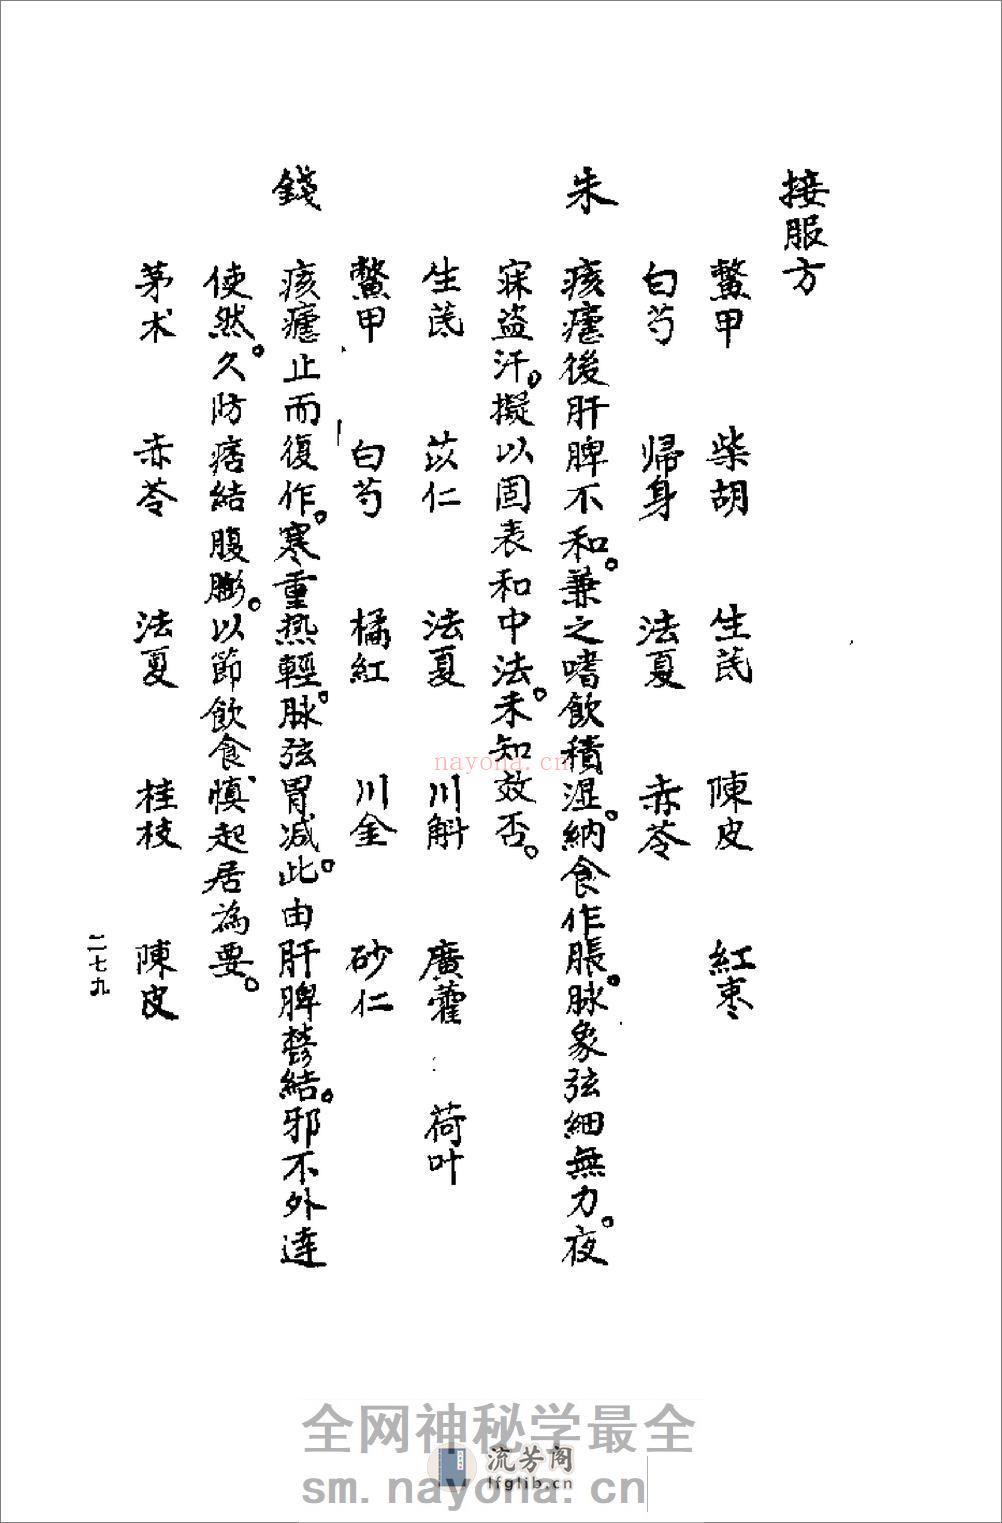 接服方
鱉甲 柴胡 生芪 陳皮 紅枣
白芍 歸身 法夏 赤苓
朱 痎瘧後肝脾不和。兼之嗜飲積湿。納食作脹。脉象弦細無力。夜
寐盗汗。擬以固表和中法。未知效否。
生芪 苡仁 法夏 川斛 廣藿 荷叶
鱉甲 白芍 橘紅 川金 砂仁
錢 痎瘧止而復作。寒重热輕。脉弦胃减。此由肝脾鬱結。邪不外達
使然。久防痞結腹膨。以節飲食、慎起居為要。
茅术 赤苓 法夏 桂枝 陳皮
二七九
nayona.cn
全网神秘学最全
流芳阁
lfglib.cn
sm.nayona.cn